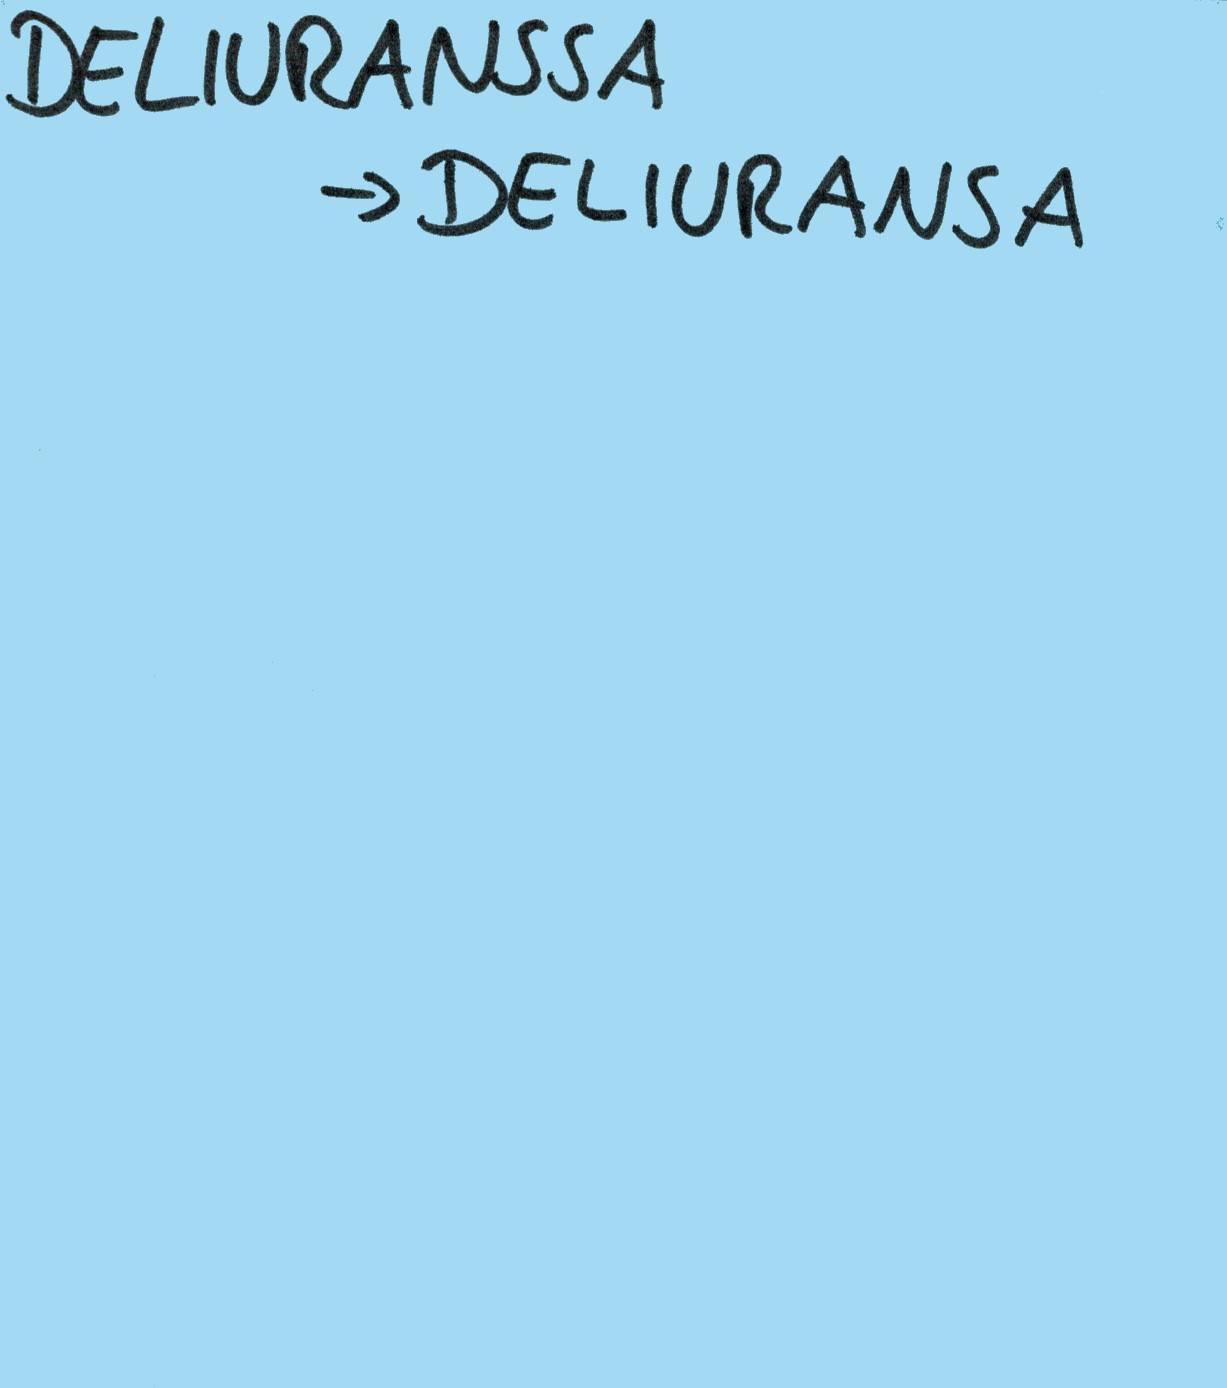 DELIURANSSA
→ DELIURANSA